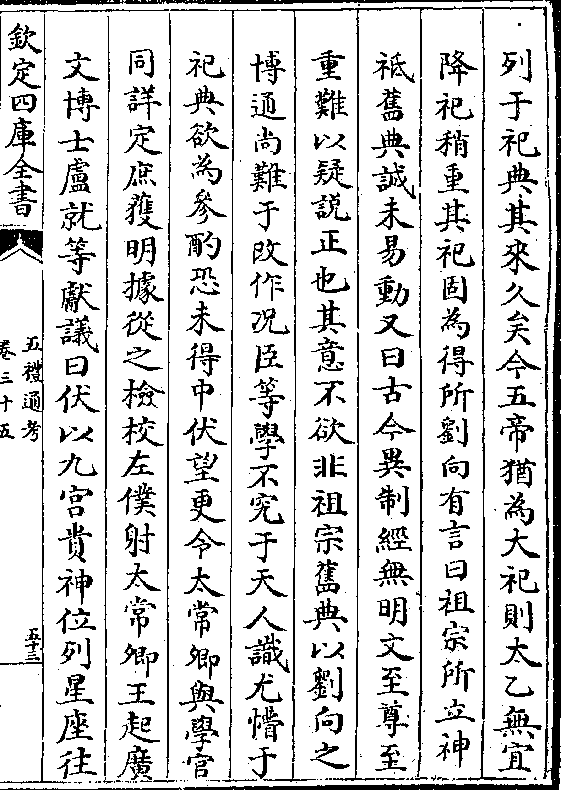 列于祀典其來久矣今五帝猶為大祀則太乙無宜
降祀稍重其祀固為得所劉向有言曰祖宗所立神
祇舊典誠未易動又曰古今異制經無明文至尊至
重難以疑說正也其意不欲非祖宗舊典以劉向之
博通尚難于改作况臣等學不究于天人識尤懵于
祀典欲為參酌恐未得中伏望更令太常卿與學官
同詳定庶獲明據從之檢校左僕射太常卿王起廣
文博士盧就等獻議曰伏以九宫貴神位列星座往
欽定四庫全書
五禮通考
卷三十五
五十三